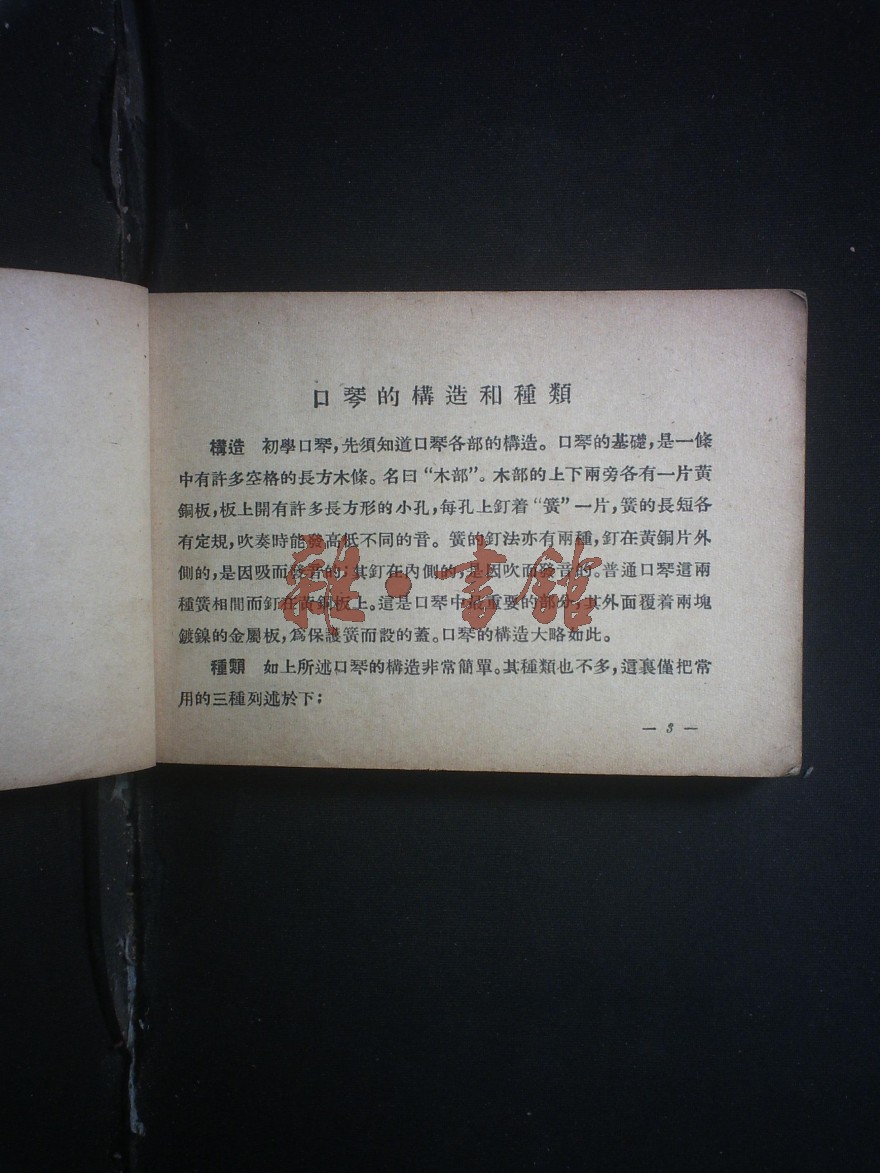 口琴的構造和種類
構造 初學口琴,先須知道口琴各部的構造。口琴的基礎,是一條
中有許多空格的長方木條。名曰“木部”。木部的上下兩旁各有一片黃
銅板,板上開有許多長方形的小孔,每孔上釘着“簧”一片,簧的長短各
有定規,吹奏時能發高低不同的音。簧的釘法亦有兩種,釘在黃銅片外
側的,是因吸而發音的;其釘在內側的,是因吹而發音的。普通口琴這兩
種簧相間而釘在黃銅板上。這是口琴中最重要的部分,其外面覆着兩塊
鍍鎳的金屬板,爲保護簧而設的蓋。口琴的構造大略如此。
種類 如上所述口琴的構造非常簡單。其種類也不多,這裏僅把常
用的三種列述於下;
— 3 —
雜·書館